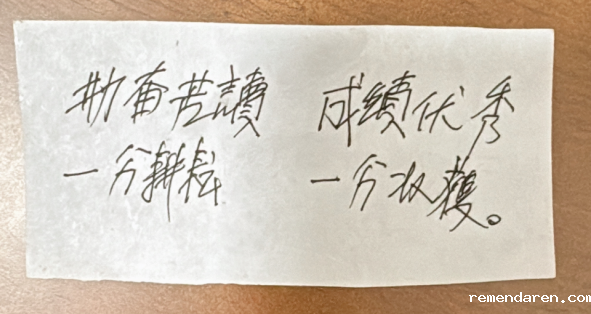 勤奋苦讀 成績优秀
一分耕耘 一分收獲。
remendaren.com